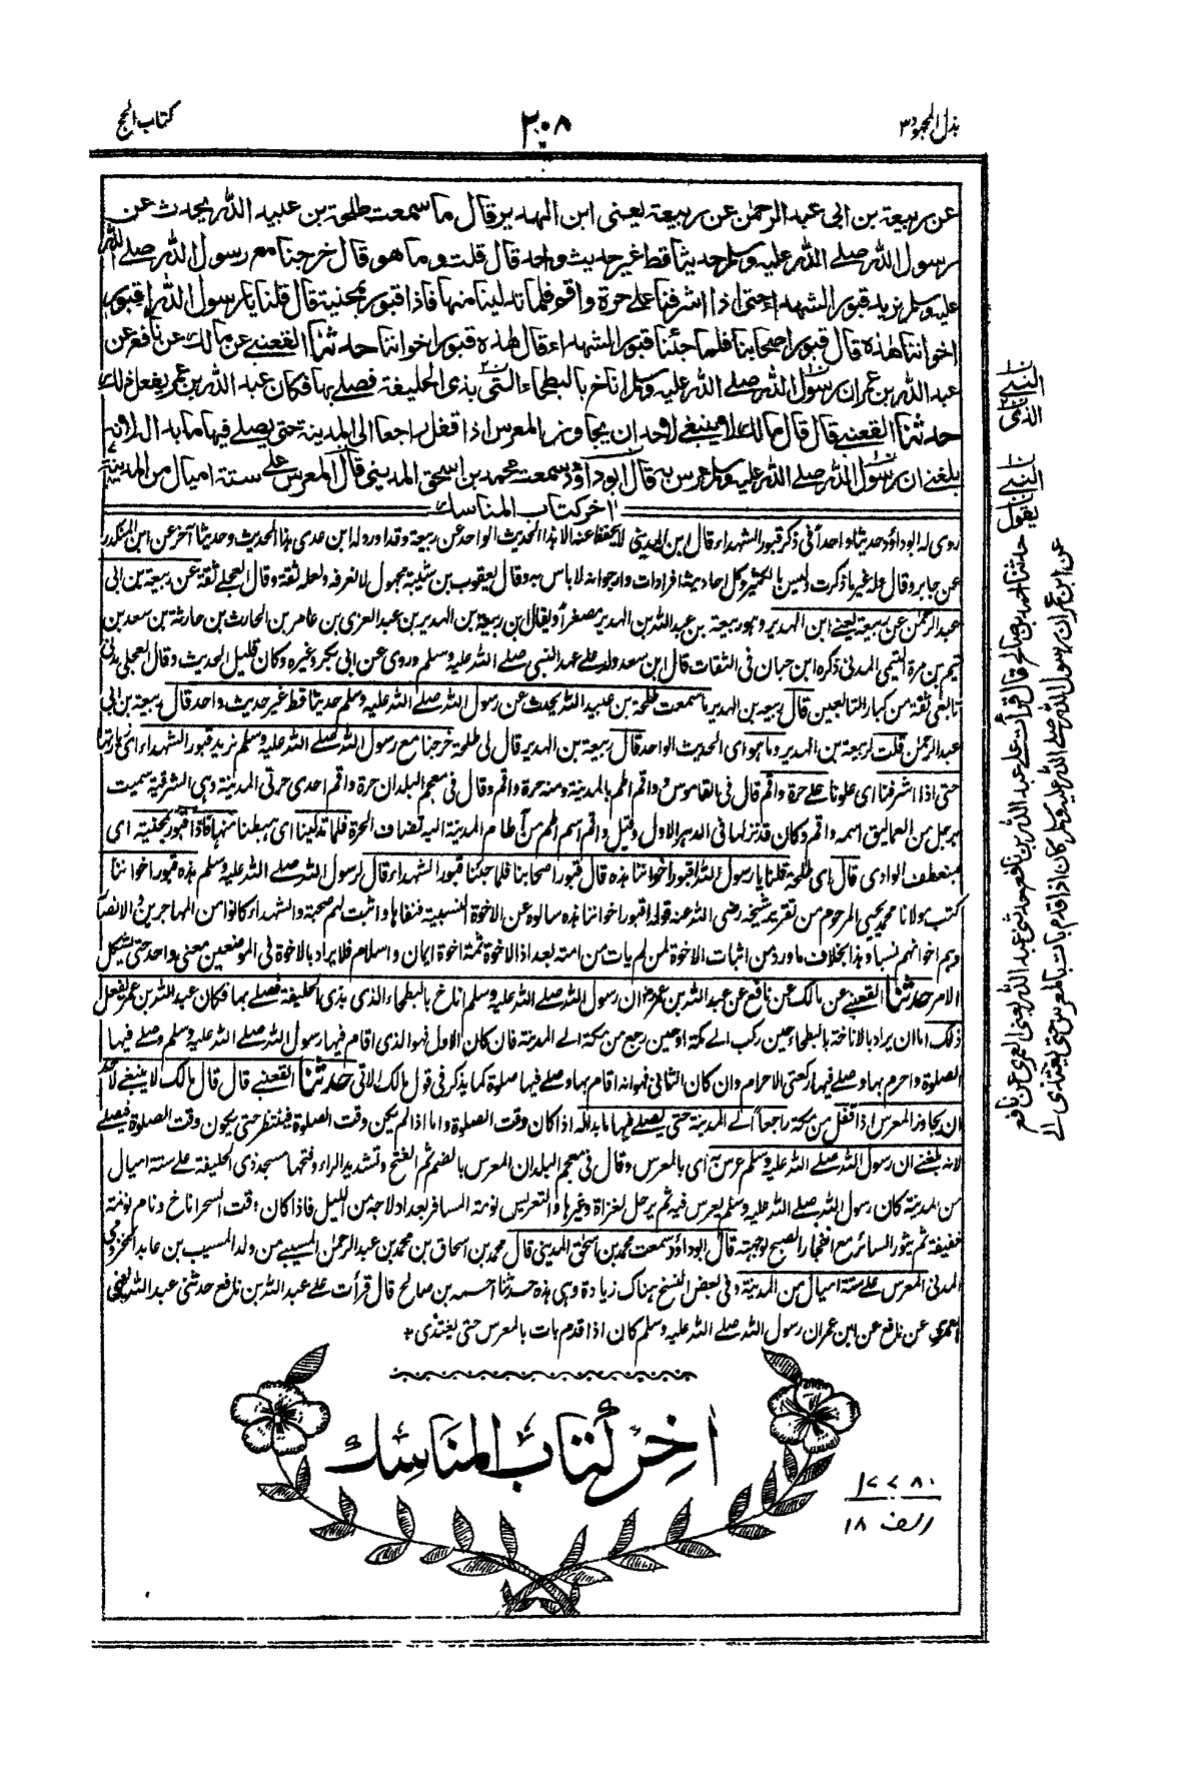 بذل المجهود ٣
٢٠٨
كتاب الحج
عن ربيعة بن ابى عبد الرحمن عن ربيعة يعنى ابن الهدير قال ما سمعت طلحة بن عبيد الله يحدث عن
رسول الله صلے الله عليه وسلم حديثا قط غير حديث واحد قال قلت وما هو قال خرجنا مع رسول الله صلے الله
عليه وسلم نريد قبور الشهداء حتى اذا اشرفنا على حرة واقم فلما تدلينا منها فاذا قبور بمحنية قال قلنا يا رسول الله اقبور
اخواننا هذه قال قبور اصحابنا فلما جئنا قبور الشهداء قال هذه قبور اخواننا حدثنا القعنبے عن مالك عن نافع عن
عبد الله بن عمر ان رسول الله صلے الله عليه وسلم اناخ بالبطحاء التى بذى الحليفة فصلے بها فكان عبد الله بن عمر يفعل ذلك
حدثنا القعنبے قال قال مالك لا ينبغے لاحد ان يجاوز المعرس اذا قفل راجعا الى المدينة حتى يصلے فيها ما بدا له لانه
بلغنے ان رسول الله صلے الله عليه وسلم عرس به قال ابو داؤد سمعت محمد بن اسحق المدينى قال المعرس على ستة اميال من المدينة
اخر كتاب المناسك
روى له ابو داؤد حديثا واحدا فى ذكر قبور الشهداء قال ابن المدينى لا يحفظ عنه الا هذا الحديث الواحد عن ربيعة وقد اورد له ابن عدى هذا الحديث وحديثا آخر عن ابن المنكدر
عن جابر وقال له غير ما ذكرت وليس بالكثير وكل احاديثه افرادات وارجو انه لا باس به وقال يعقوب بن شيبة مجهول لا نعرفه ولعله ثقة وقال العجلے ثقة عن ربيعة بن ابى
عبد الرحمن عن ربيعة يعنے ابن الهدير وهو ربيعة بن عبد الله بن الهدير مصغرا ويقال ابن ربيعة بن الهدير بن عبد العزى بن عامر بن الحارث بن حارثة بن سعد بن
تيم بن مرة التيمى المدنى ذكره ابن حبان فى الثقات قال ابن سعد ولد على عهد النبى صلے الله عليه وسلم وروى عن ابى بكر وغيره وكان قليل الحديث وقال العجلى مدنى
تابعى ثقة من كبار التابعين قال ربيعة بن الهدير ما سمعت طلحة بن عبيد الله يحدث عن رسول الله صلے الله عليه وسلم حديثا قط غير حديث واحد قال ربيعة بن ابى
عبد الرحمن قلت لربيعة بن الهدير وما هو اى الحديث الواحد قال ربيعة بن الهدير قال لى طلحة خرجنا مع رسول الله صلے الله عليه وسلم نريد قبور الشهداء اى زيارتها
حتى اذا اشرفنا اى علونا على حرة واقم قال فى القاموس واقم اطم بالمدينة ومنه حرة واقم وقال فى معجم البلدان حرة واقم احدى حرتى المدينة وهى الشرقية سميت
برجل من العماليق اسمه واقم وكان قد نزلها فى الدهر الاول وقيل واقم اسم اطم من آطام المدينة اليه تضاف الحرة فلما تدلينا اى هبطنا منها فاذا قبور بمحنية اى
بمنعطف الوادى قال اى طلحة قلنا يا رسول الله اقبور اخواننا هذه قال قبور اصحابنا فلما جئنا قبور الشهداء قال رسول الله صلے الله عليه وسلم هذه قبور اخواننا
كتب مولانا محمد يحيى المرحوم من تقرير شيخه رضى الله عنه قوله اقبور اخواننا هذه سألوه عن الاخوة النسبية فنفاها واثبت لهم صحبة والشهداء كانوا من المهاجرين والانصار
وهم اخوانهم نسبا وهذا بخلاف ما ورد من اثبات الاخوة لمن لم يات من امته بعد اذ الاخوة ثمة اخوة ايمان واسلام فلا يراد بالاخوة فى الموضعين معنى واحد حتى يشكل
الامر حدثنا القعنبے عن مالك عن نافع عن عبد الله بن عمر ان رسول الله صلے الله عليه وسلم اناخ بالبطحاء الذى بذى الحليفة فصلے بها فكان عبد الله بن عمر يفعل
ذلك اما ان يراد بالاناخة بالبطحاء حين ركب الے مكة او حين رجع من مكة الے المدينة فان كان الاول فهو الذى اقام فيها رسول الله صلے الله عليه وسلم وصلے فيها
الصلوة واحرم بها وصلے فيها ركعتى الاحرام وان كان الثانى فهو انه اقام بها وصلے فيها صلوة كما يذكر فى قول مالك الاتى حدثنا القعنبے قال قال مالك لا ينبغے لاحد
ان يجاوز المعرس اذا قفل من مكة راجعا الے المدينة حتى يصلے فيها ما بدا له اذا كان وقت الصلوة واما اذا لم يكن وقت الصلوة فينتظر حتى يكون وقت الصلوة فيصلے
لانه بلغنے ان رسول الله صلے الله عليه وسلم عرس به اى بالمعرس وقال فى معجم البلدان المعرس بالضم ثم الفتح وتشديد الراء وفتحها مسجد ذى الحليفة على ستة اميال
من المدينة كان رسول الله صلے الله عليه وسلم يعرس فيه ثم يرحل لغزاة وغيرها والتعريس نومة المسافر بعد ادلاجه من الليل فاذا كان وقت السحر اناخ ونام نومة
خفيفة ثم يثور السائر مع انفجار الصبح لوجهته قال ابو داؤد سمعت محمد بن اسحق المدينى قال محمد بن اسحاق بن محمد بن عبد الرحمن المسيبے من ولد المسيب بن عابد المخزومى
المدنى المعرس على ستة اميال من المدينة وفى بعض النسخ هناك زيادة وهى هذه حدثنا احمد بن صالح قال قرأت على عبد الله بن نافع حدثنى عبد الله يعنى
العمرى عن نافع عن ابن عمر ان رسول الله صلے الله عليه وسلم كان اذا قدم بات بالمعرس حتى يغتدى
اخر كتاب المناسك
الف ١٨
الذى
يقول
حدثنا احمد بن صالح قال قرأت على عبد الله بن نافع حدثنى عبد الله يعنى العمرى عن نافع
عن ابن عمر ان رسول الله صلے الله عليه وسلم كان اذا قدم بات بالمعرس حتى يغتدى